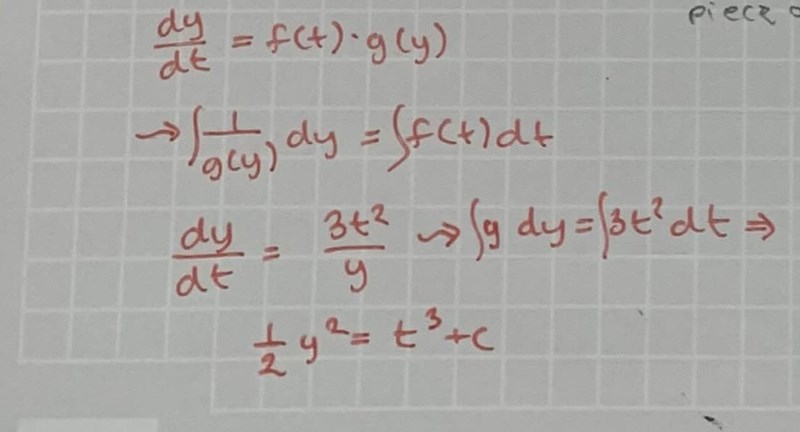 piece
dy/dt = f(t) · g(y)
→ ∫ 1/g(y) dy = ∫ f(t) dt
dy/dt = 3t²/y → ∫ y dy = ∫ 3t² dt ⇒
1/2 y² = t³ + c